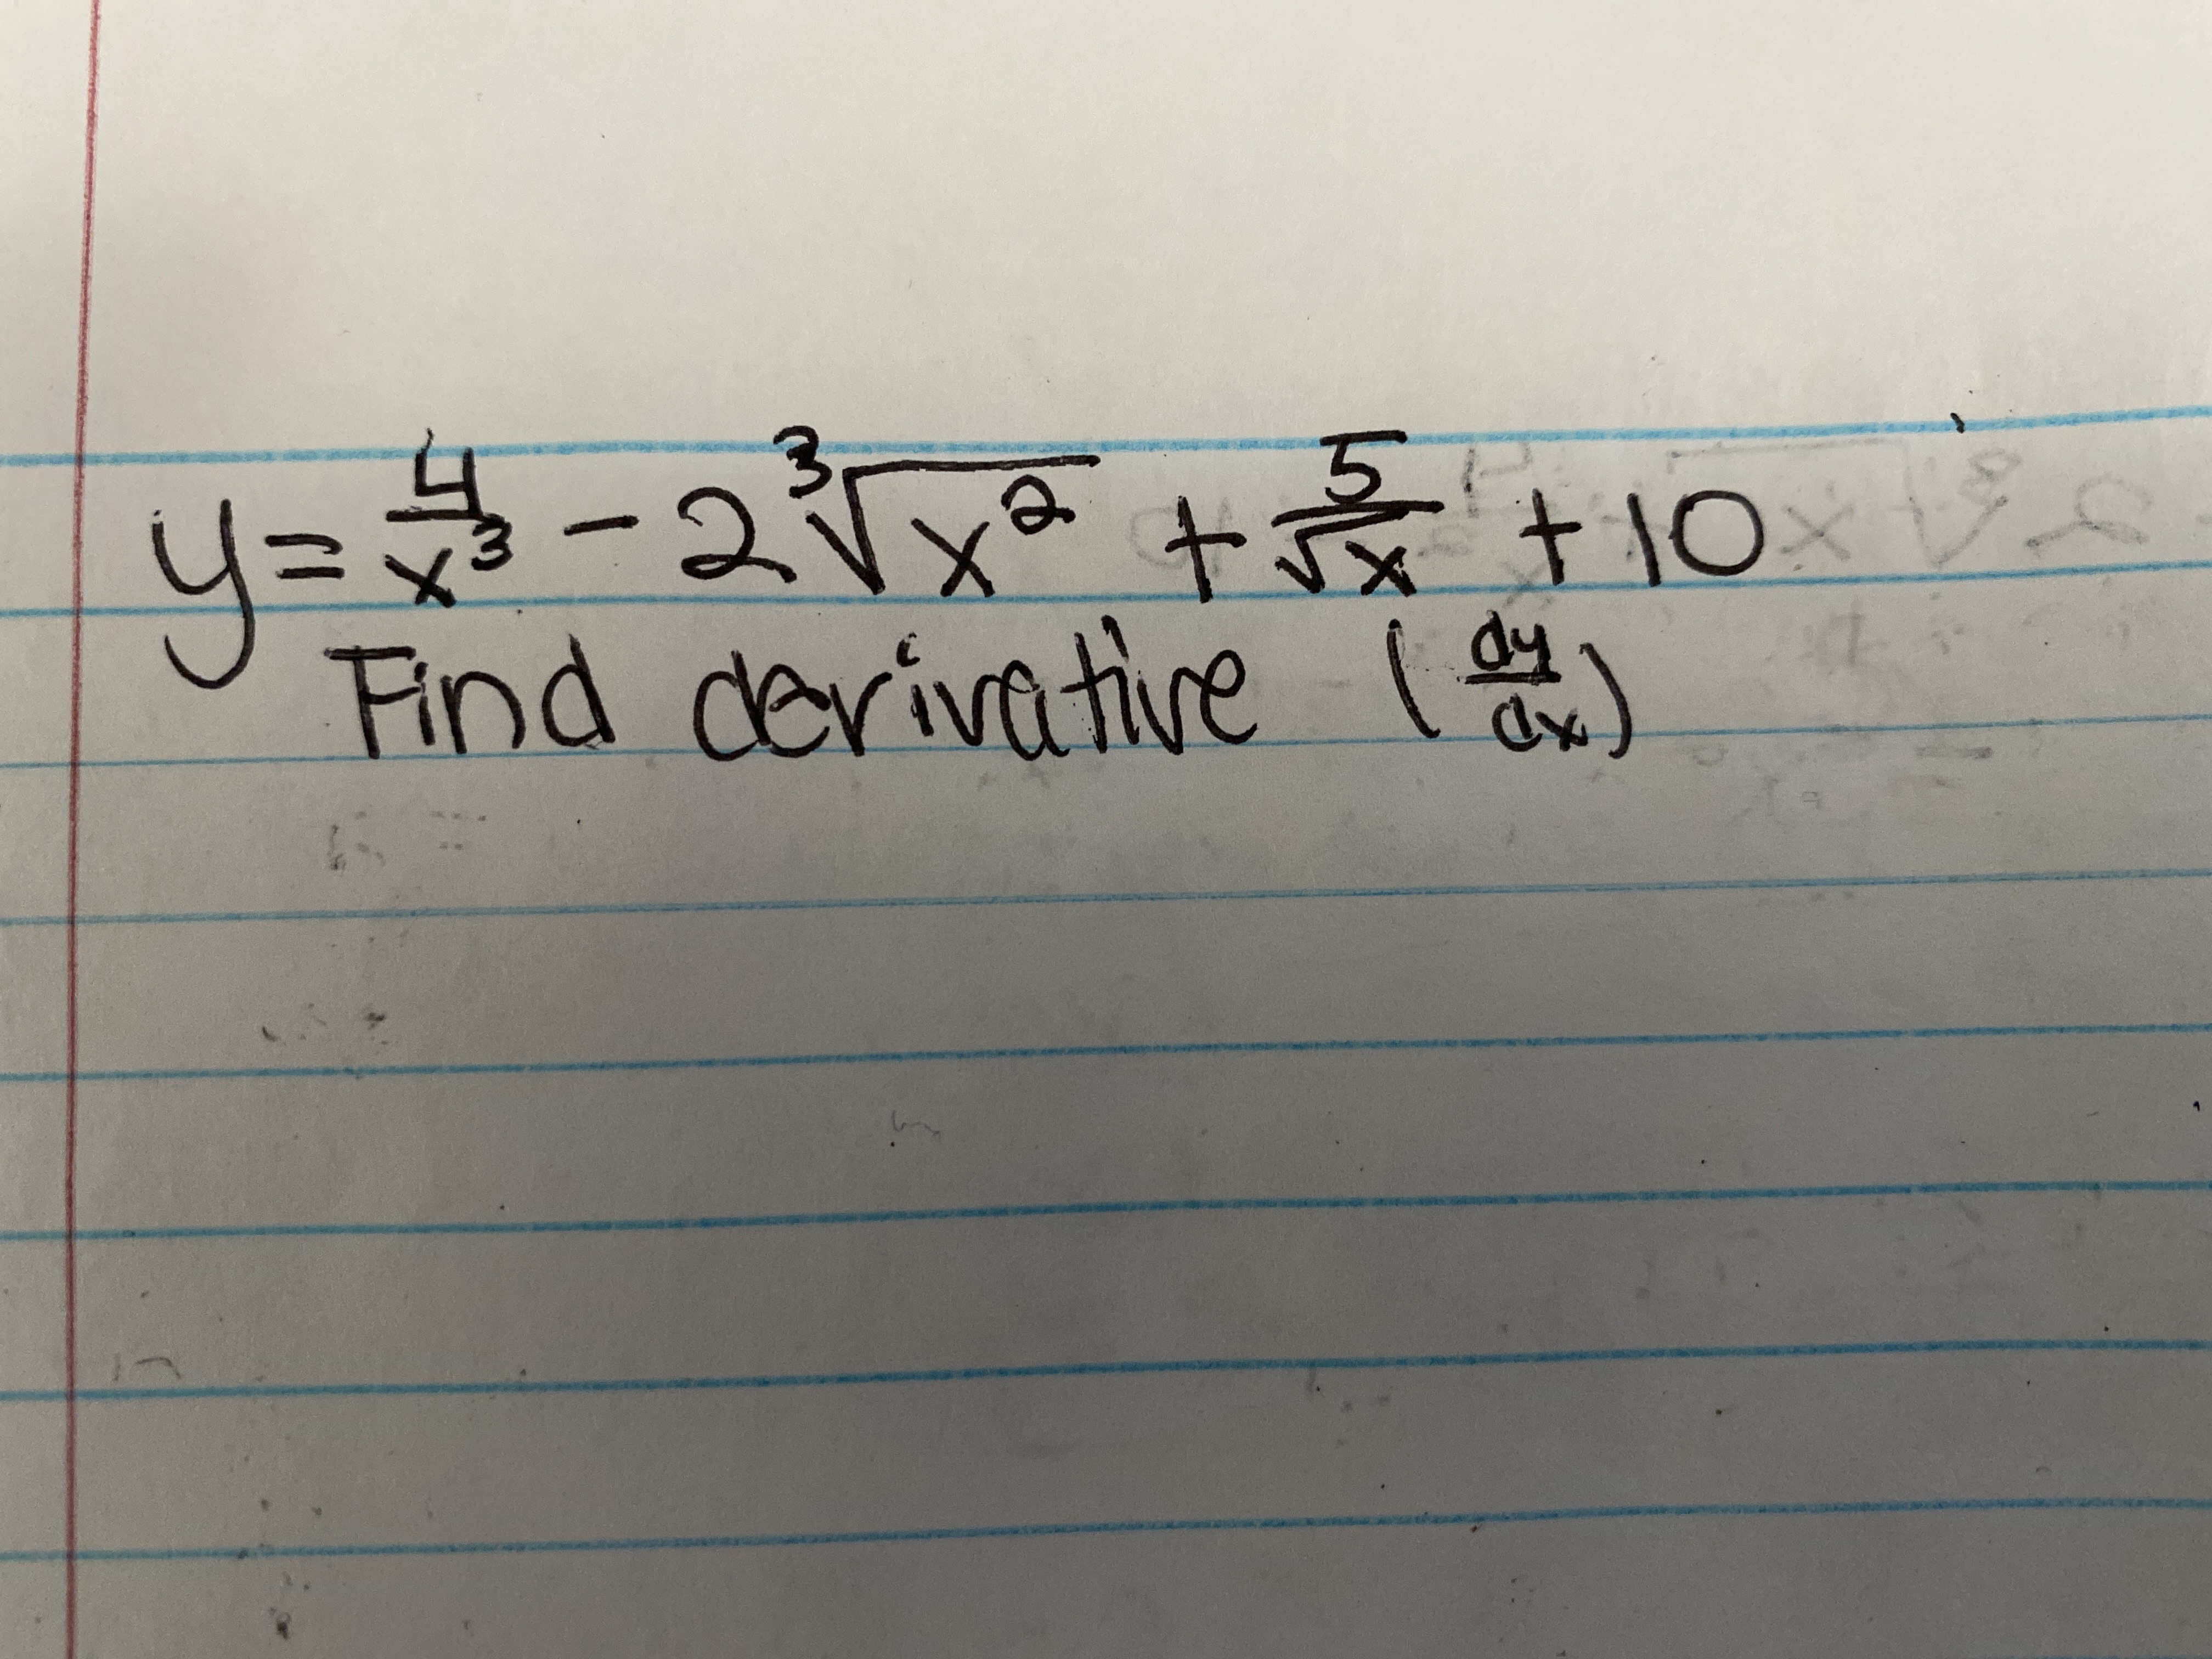 y = 4/x³ - 2 ³√x² + 5/√x + 10
Find derivative (dy/dx)